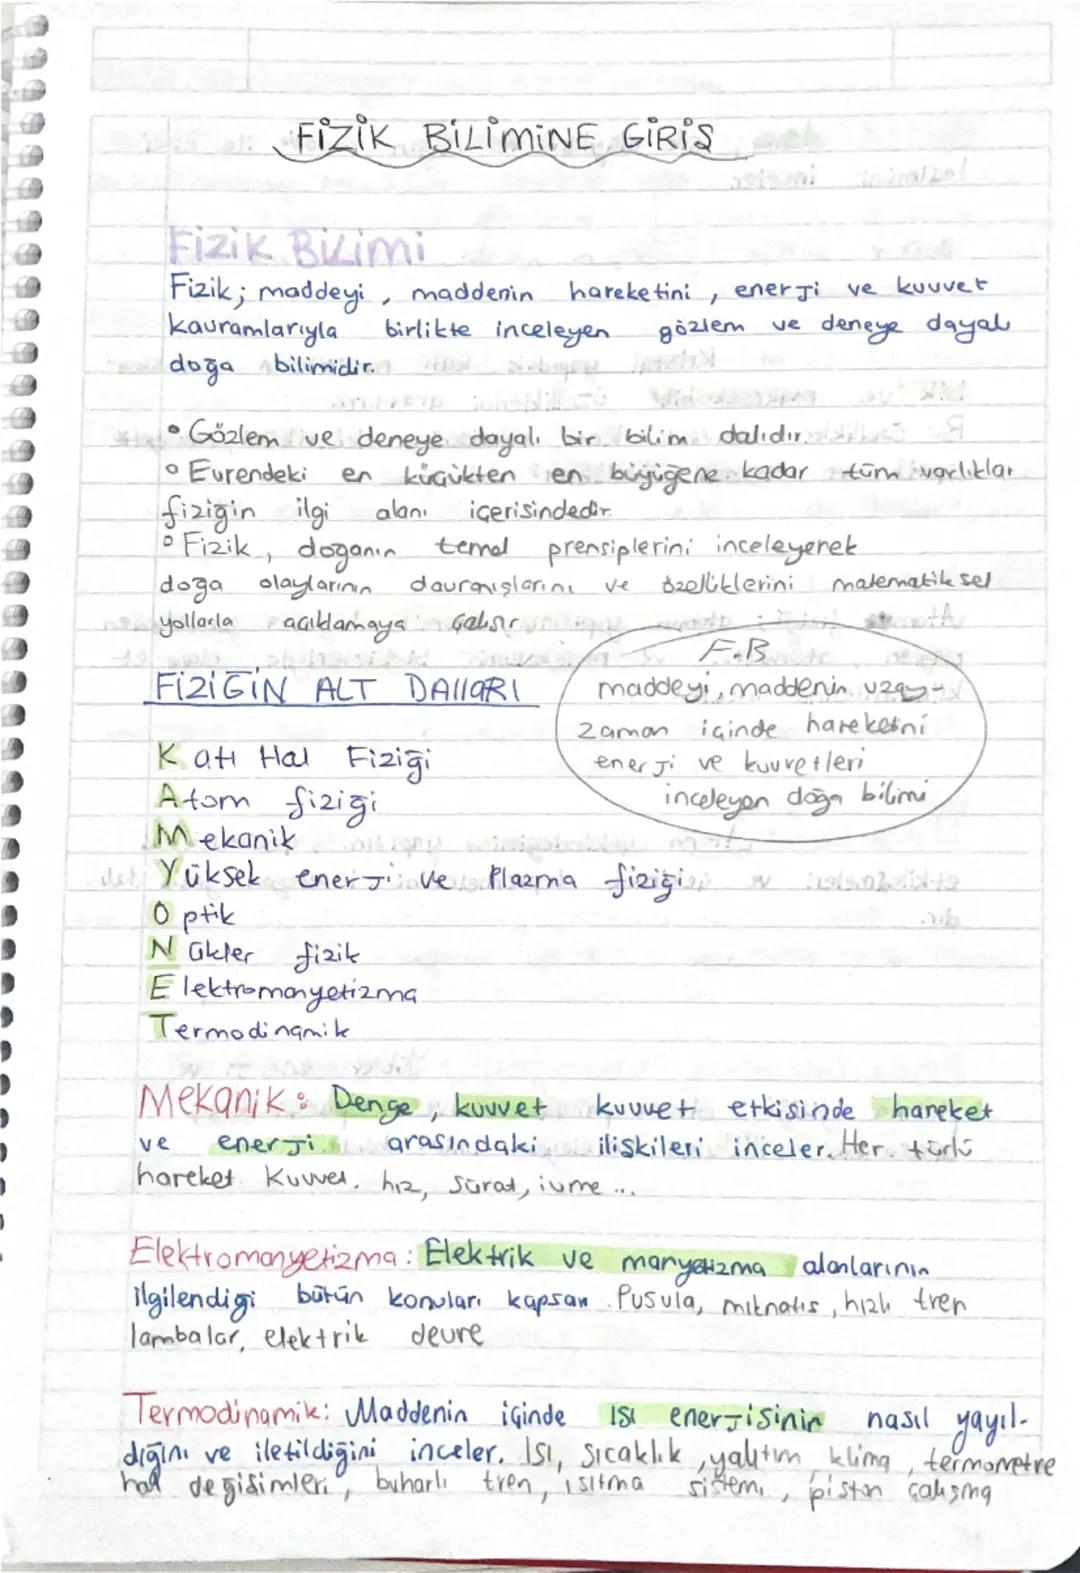 FİZİK BİLİMİNE GİRİŞ
Fizik Bilimi
Fizik; maddeyi, maddenin hareketini, enerji ve kuvvet
kavramlarıyla birlikte inceleyen gözlem ve deneye dayalı
doğa bilimidir.
• Gözlem ve deneye dayalı bir bilim dalıdır.
• Evrendeki en küçükten en büyüğene kadar tüm varlıklar
fiziğin ilgi alanı içerisindedir.
• Fizik, doğanın temel prensiplerini inceleyerek
doğa olaylarının davranışlarını ve özelliklerini matematiksel
yollarla açıklamaya çalışır.
FİZİĞİN ALT DAllARI
F.B
maddeyi, maddenin uzay-
zaman içinde hareketini
enerji ve kuvvetleri
inceleyen doğa bilimi
Katı Hal Fiziği
Atom fiziği
Mekanik
Yüksek enerji ve Plazma fiziği
Optik
Nükler fizik
Elektromanyetizma
Termodinamik
Mekanik: Denge, kuvvet kuvvet etkisinde hareket
ve enerji arasındaki ilişkileri inceler. Her türlü
hareket Kuvvet, hız, sürat, ivme ...
Elektromanyetizma: Elektrik ve manyetizma alanlarının
ilgilendiği bütün konuları kapsar. Pusula, mıknatıs, hızlı tren
lambalar, elektrik devre
Termodinamik: Maddenin içinde ısı enerjisinin nasıl yayıl-
dığını ve iletildiğini inceler. Isı, sıcaklık, yalıtım, klima, termometre
hal değişimleri, buharlı tren, ısıtma sistemi, piston çalışma